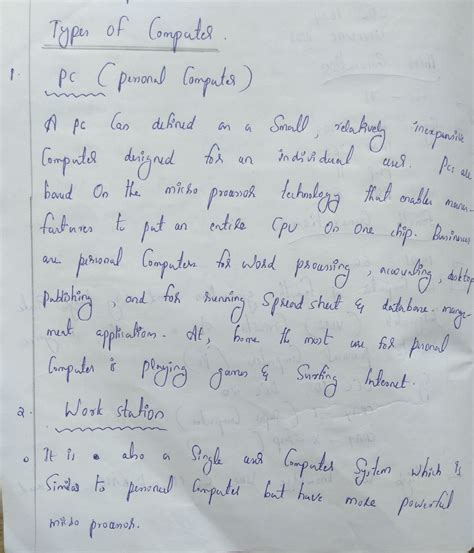 Types of Computer.
1. PC (Personal Computer)
A PC Can defined as a Small, relatively inexpensive
Computer designed for an individual user. PCs are
based On the micro processor technology that enables manu-
facturers to put an entire CPU On One chip. Businesses
use personal Computers for word processing, accounting, desktop
publishing, and for running Spread sheet & database. mange-
ment applications. At, home the most use for personal
Computer is playing games & Surfing Internet.
2. Work station
It is also a Single user Computer System which is
Similar to personal Computer but have more powerful
micro processor.